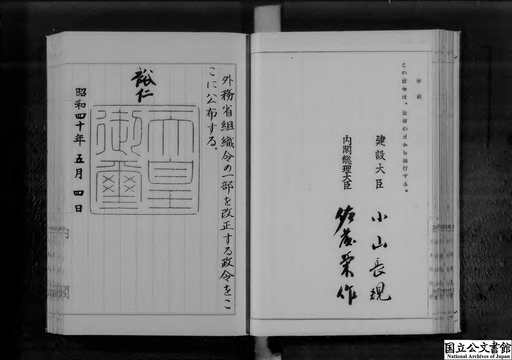 附則
この政令は、公布の日から施行する。
建設大臣 小山長規
内閣総理大臣 佐藤榮作
外務省組織令の一部を改正する政令をこ
こに公布する。
裕仁
天皇
御璽
昭和四十年五月四日
国立公文書館
National Archives of Japan